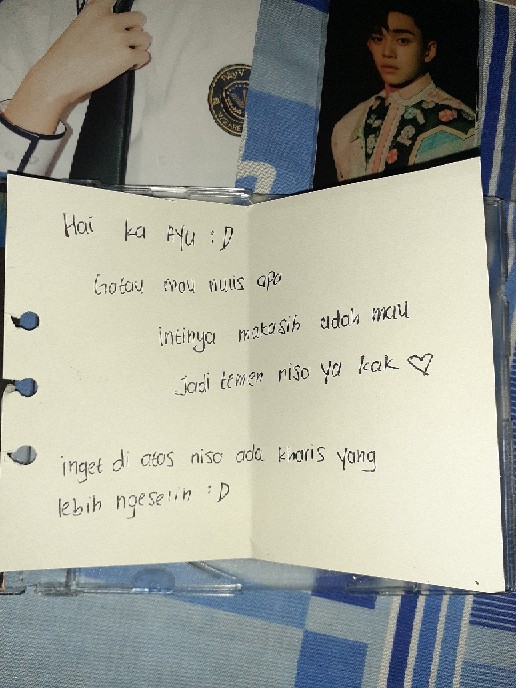 NAVY
Hai ka AYU :D
Gatau mau nulis apa
intinya makasih udah mau
jadi temen nisa ya kak ♡
inget di atas nisa ada kharis yang
lebih ngeselin :D